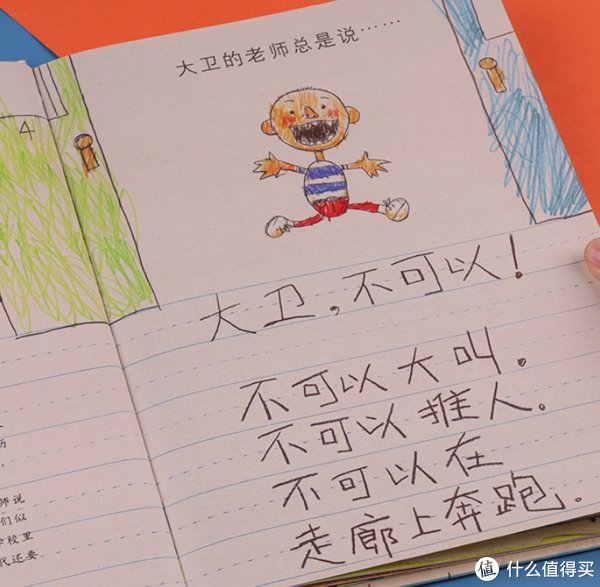 大卫的老师总是说……
4
大卫,不可以!
不可以大叫。
不可以推人。
不可以在
走廊上奔跑.
师说
们似
学校里
代还要
值 什么值得买